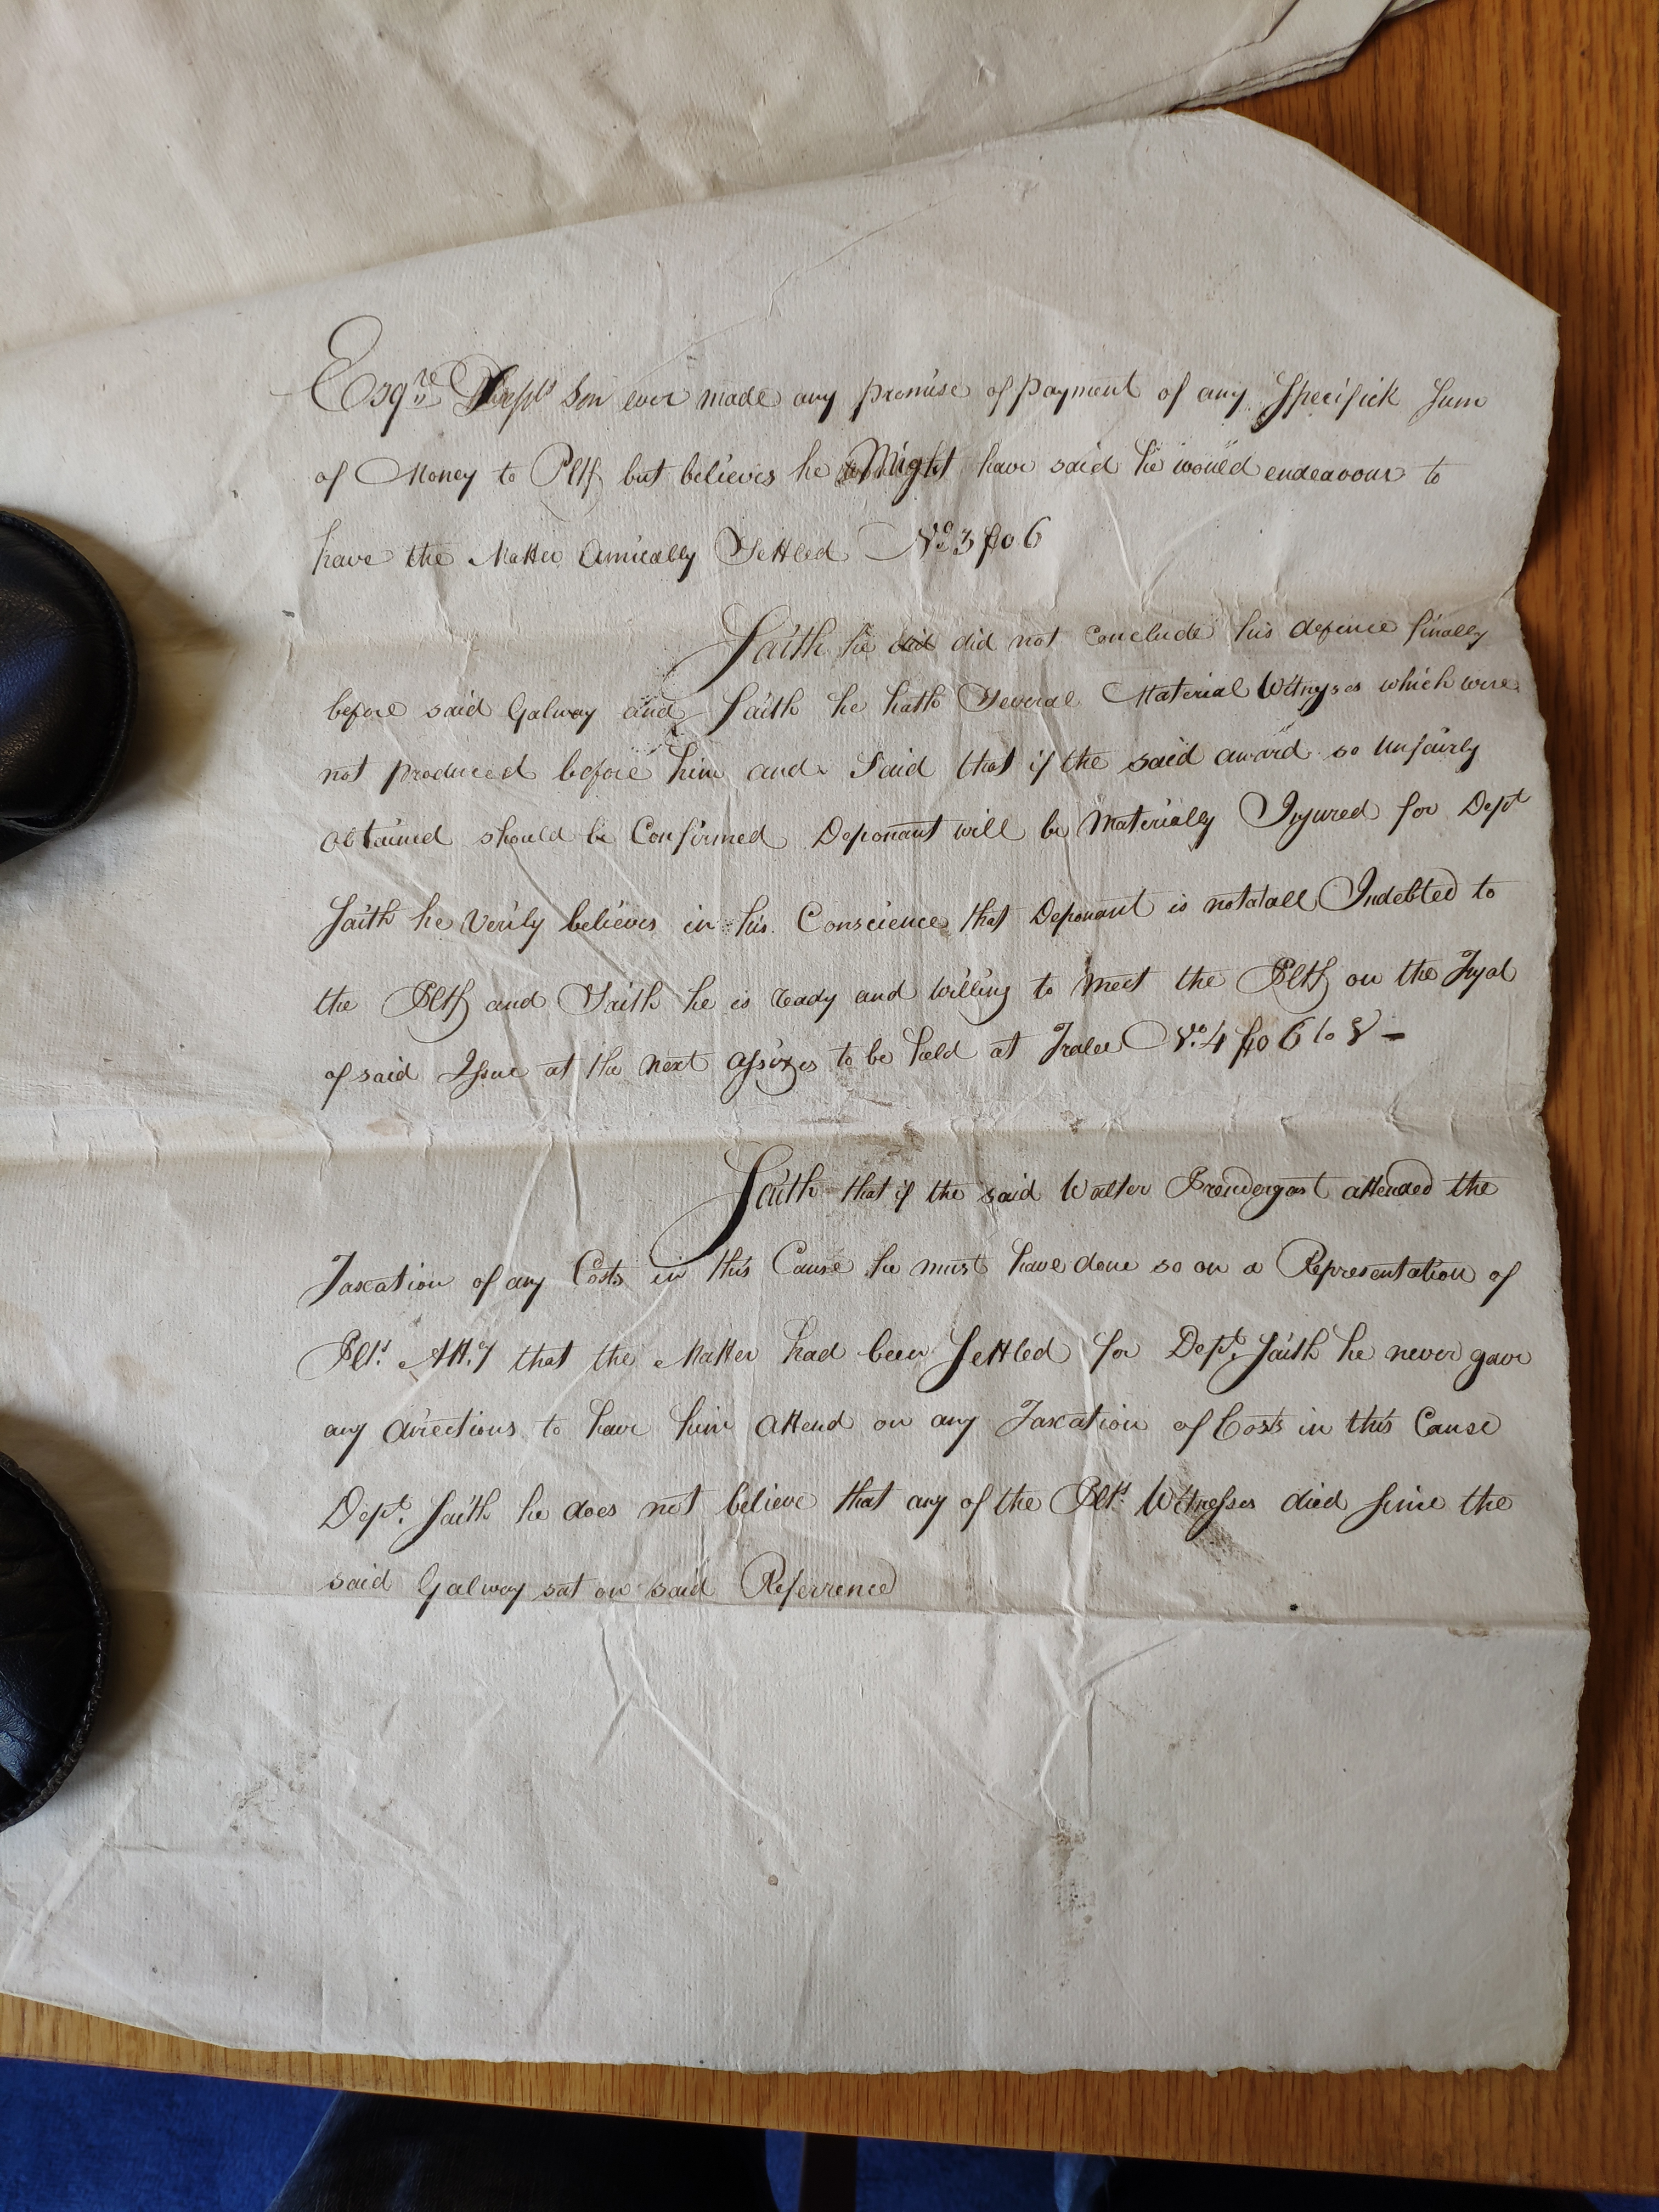 Esqre. Depts Son ever made any promise of payment of any Specifick Sum
of Money to Pltf but believes he Might have said he would endeavour to
have the Matter Amicably Settled No. 3 fo 6
Saith he did did not Conclude his defence finally
before said Galway and Saith he hath Several Material Witnyses which were
not produced before him and Said that if the said award so unfairly
obtained should be Confirmed Deponant will be Materially Injured for Dept
Saith he Verily believes in his Conscience that Deponant is notatall Indebted to
the Pltf and Saith he is ready and willing to meet the Pltf on the Tryal
of said Issue at the next assizes to be held at Tralee No. 4 fo 6 to 8 -
Saith that if the said Walter Prendergast attended the
Taxation of any Costs in this Cause he must have done so on a Representation of
Plts. Att.y that the Matter had been Settled for Dept. Saith he never gave
any directions to have him attend on any Taxation of Costs in this Cause
Dept. Saith he does not believe that any of the Plts. Witnesses died Since the
said Galway sat on said Referrence